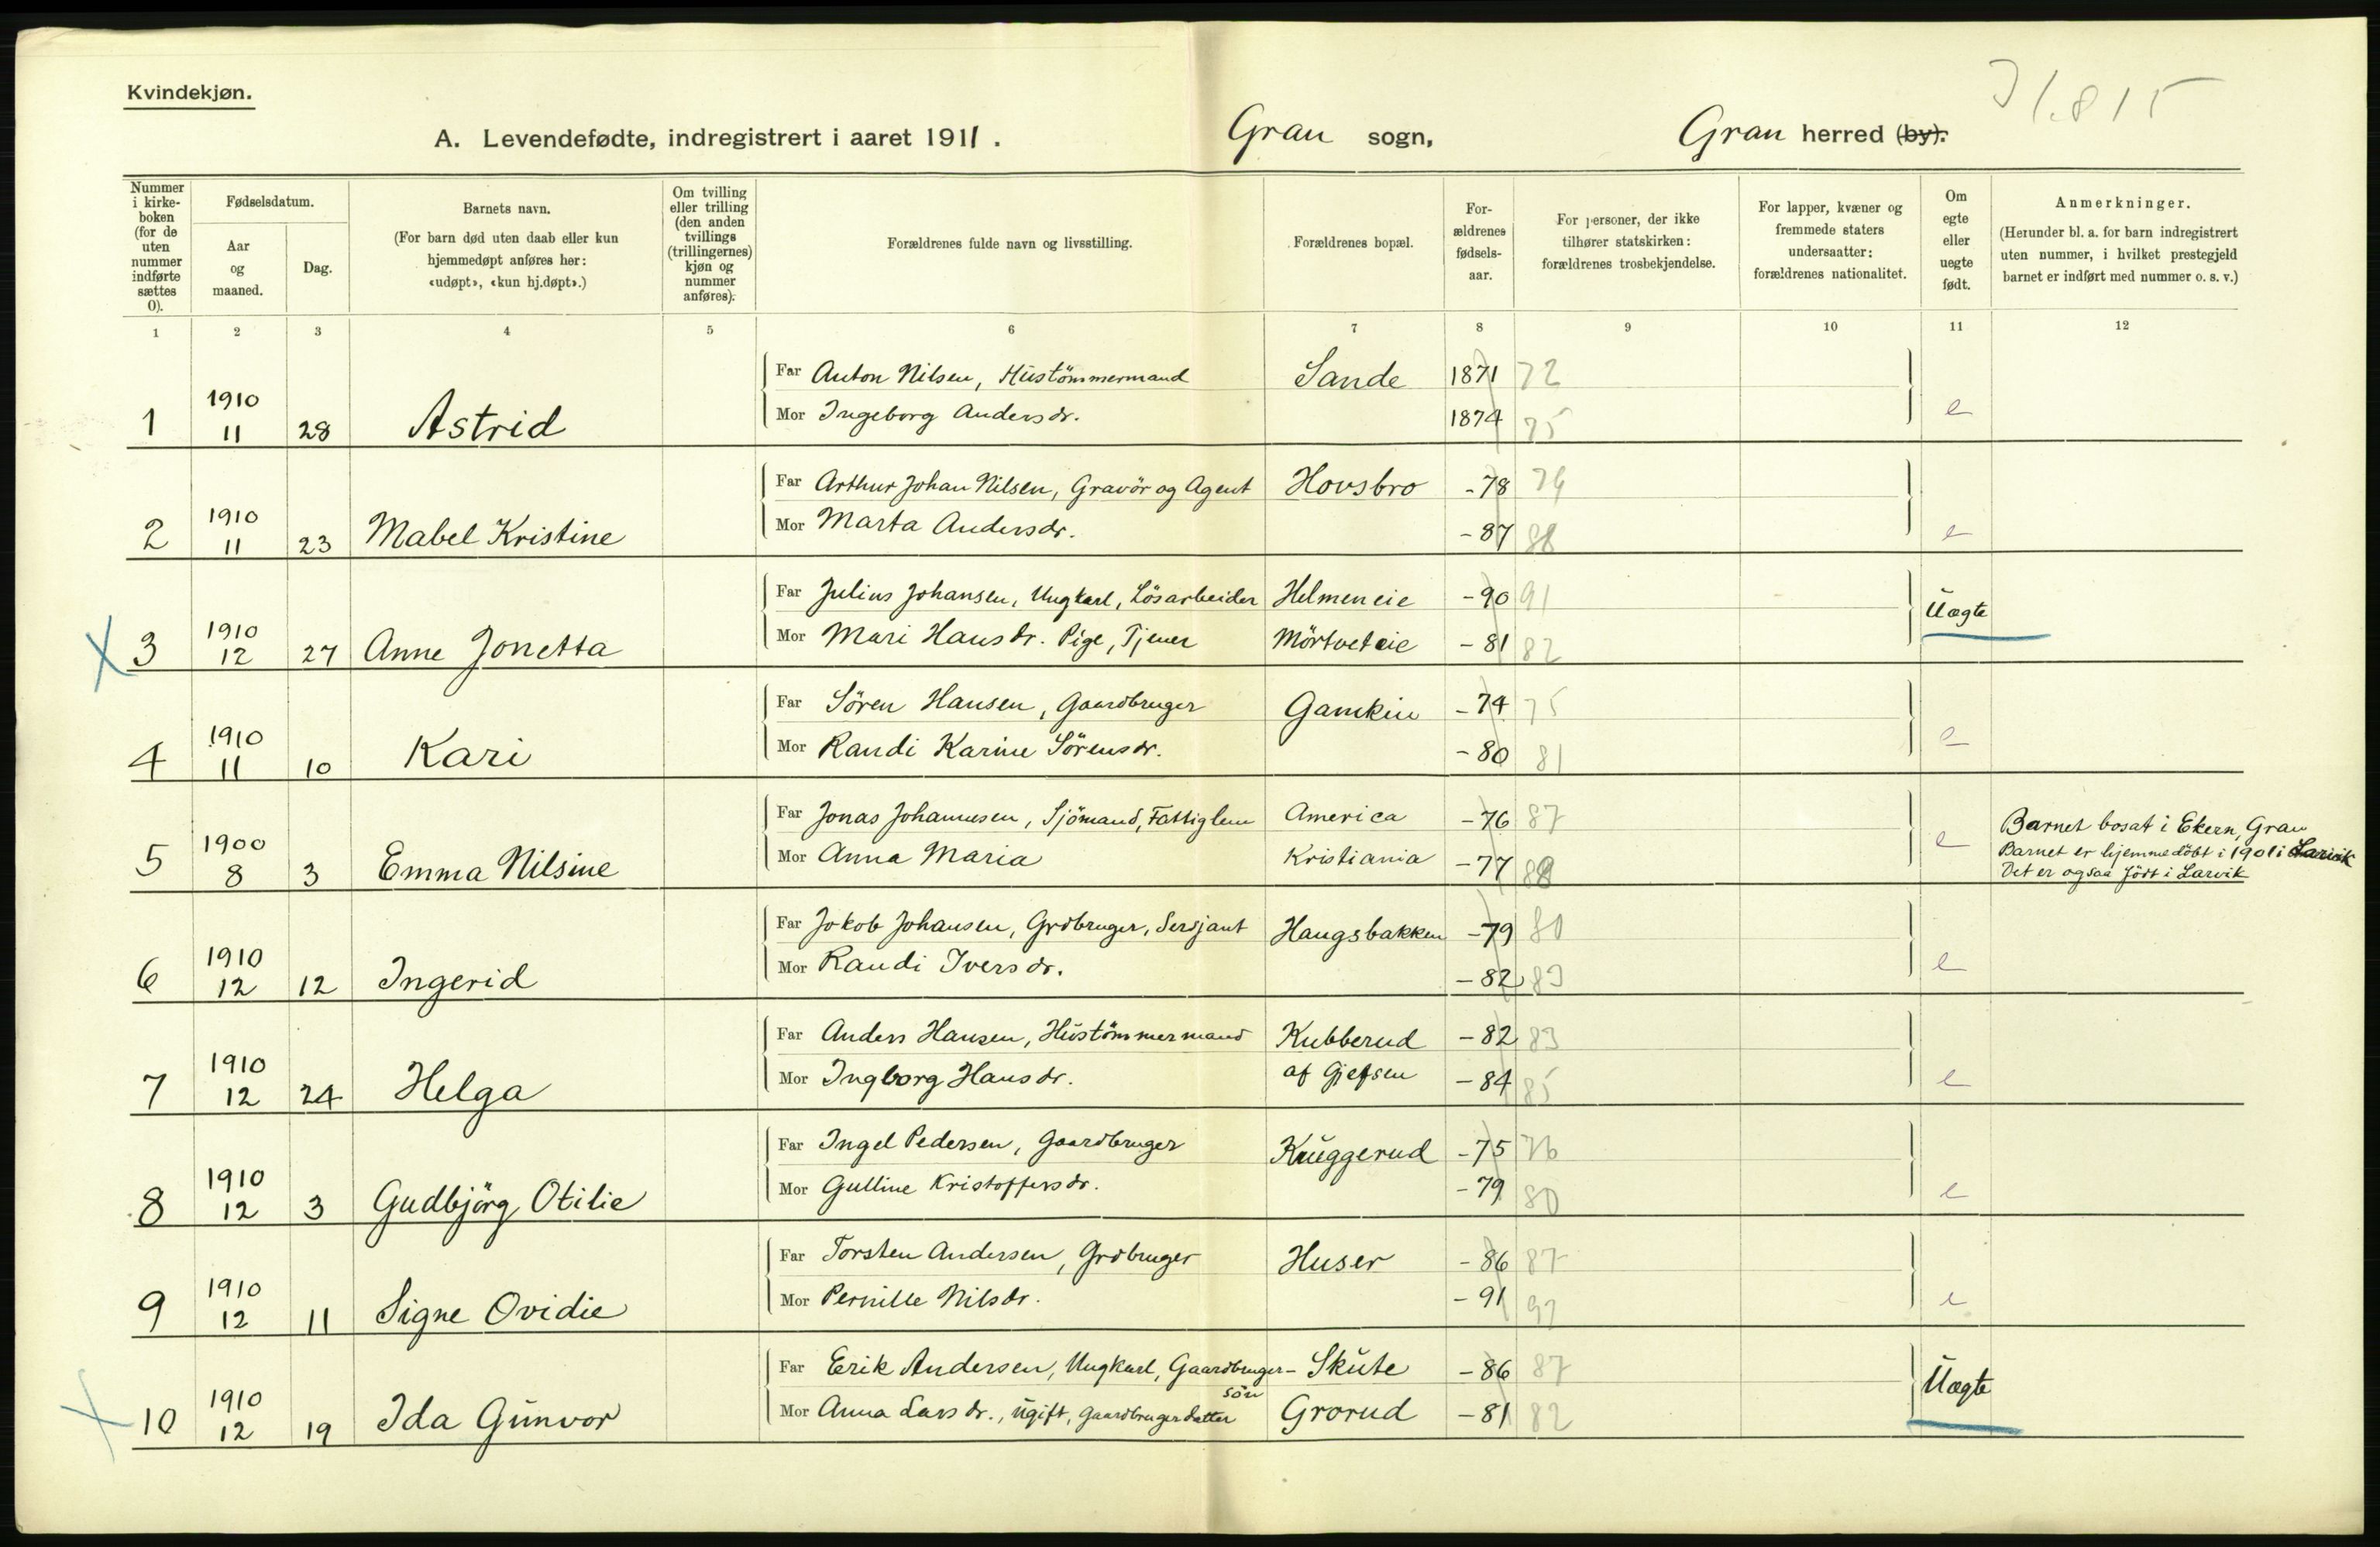 Kvindekjøn.
A. Levendefødte, indregistrert i aaret 1911. Gran sogn, Gran herred (by).
Nummer i kirke-boken (for de uten nummer indførte sættes 0).
Fødselsdatum.
Aar og maaned.
Dag.
Barnets navn.
(For barn død uten daab eller kun hjemmedøpt anføres her: «udøpt», «kun hj.døpt».)
Om tvilling eller trilling (den anden tvillings (trillingernes) kjøn og nummer anføres).
Forældrenes fulde navn og livsstilling.
Forældrenes bopæl.
For-ældrenes fødsels-aar.
For personer, der ikke tilhører statskirken: forældrenes trosbekjendelse.
For lapper, kvæner og fremmede staters undersaatter: forældrenes nationalitet.
Om egte eller uegte født.
Anmerkninger.
(Herunder bl. a. for barn indregistrert uten nummer, i hvilket prestegjeld barnet er indført med nummer o. s. v.)
1 2 3 4 5 6 7 8 9 10 11 12
Far Anton Nilsen, Hustömmermand Sande 1871 72
1 1910 11 28 Astrid Mor Ingeborg Andersdr. 1874 75 e
Far Arthur Johan Nilsen, Gravör og Agent Hovsbro -78 79
2 1910 11 23 Mabel Kristine Mor Marta Andersdr. -87 88 e
Far Julius Johansen, Ungkarl, Lösarbeider Helmeneie -90 91 Uægte
3 1910 12 27 Anne Jonetta Mor Mari Hansdr. Pige, Tjener Mörtveteie -81 82
Far Sören Hansen, Gaardbruger Gamkin -74 75
4 1910 11 10 Kari Mor Randi Karine Sörensdr. -80 81 e
Far Jonas Johannesen, Sjömand, Fattiglem America -76 87
5 1900 8 3 Emma Nilsine Mor Anna Maria Kristiania -77 88 e
Barnet bosat i Ekern, Gran
Barnet er hjemmedöbt i 1901 i Larvik
Det er ogsaa födt i Larvik
Far Jokob Johansen, Grdbruger, Sersjant Haugsbakken -79 80
6 1910 12 12 Ingerid Mor Randi Iversdr. -82 83 e
Far Anders Hansen, Hustömmermand Kubberud -82 83
7 1910 12 24 Helga Mor Ingborg Hansdr. af Gjefsen -84 85 e
Far Ingel Pedersen, Gaardbruger Kruggerud -75 76
8 1910 12 3 Gudbjörg Otilie Mor Gulline Kristoffersdr. -79 80 e
Far Torsten Andersen, Grdbruger Huser -86 87
9 1910 12 11 Signe Ovidie Mor Pernille Nilsdr. -91 92 e
Far Erik Andersen, Ungkarl, Gaardbruger-sön Skute -86 87 Uægte
10 1910 12 19 Ida Gunvor Mor Anna Larsdr., ugift, Gaardbrugerdatter Grorud -81 82